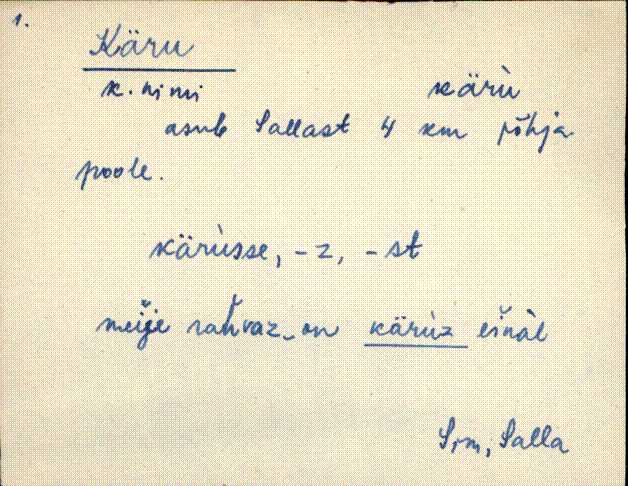 1.
Käru
k. nimi kärù
asub Sallast 4 km põhja
poole.
kärùsse, -z, -st
meije rahvaz‿on kärùz einàl
Sim, Salla